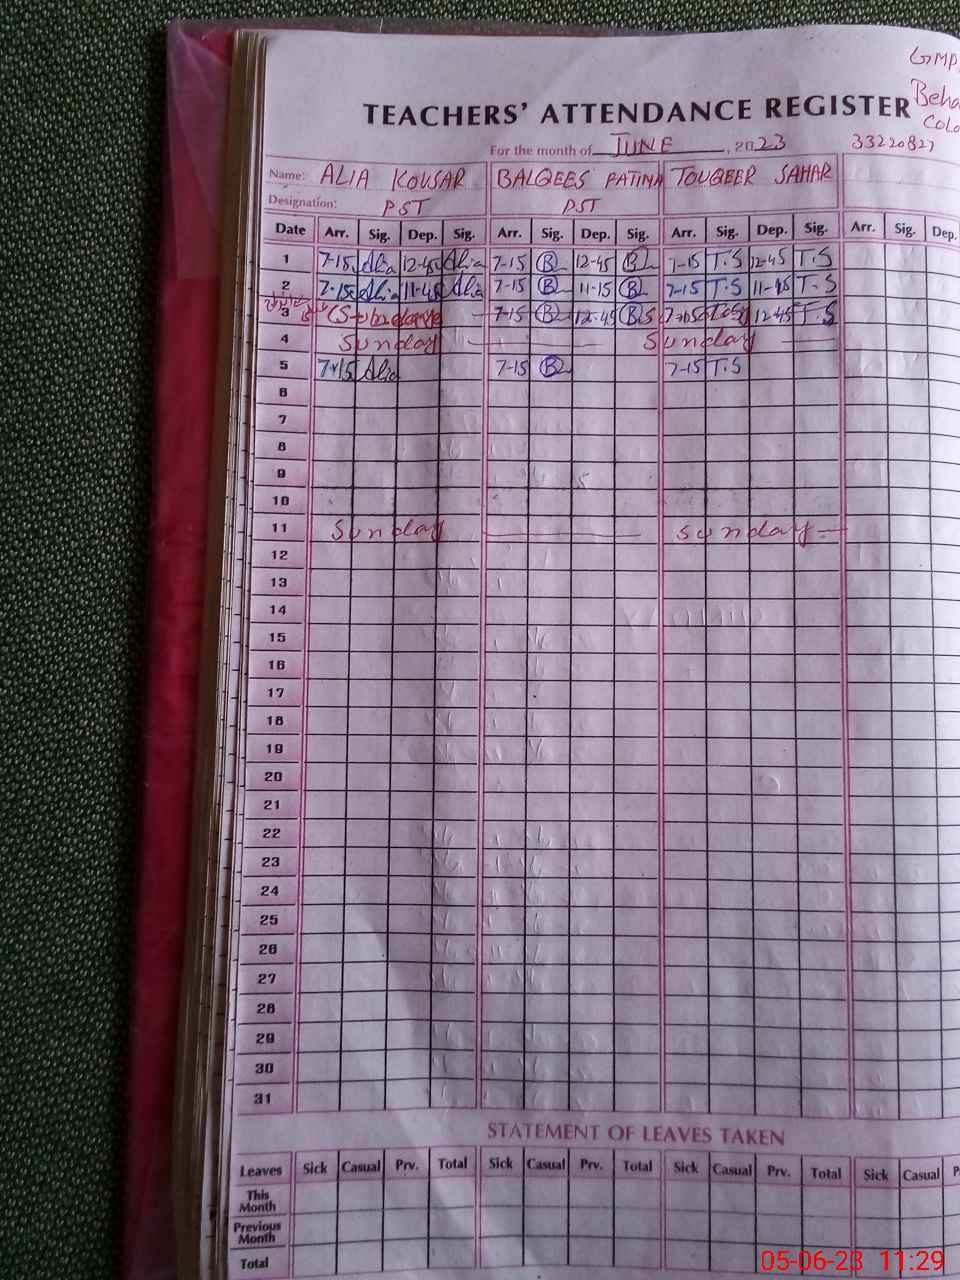 GMP
TEACHERS' ATTENDANCE REGISTER
For the month of JUNE, 2023 33220827
Name: ALIA KOUSAR BALQEES FATIMA TOUQEER SAHAR
Designation: PST PST
Date Arr. Sig. Dep. Sig. Arr. Sig. Dep. Sig. Arr. Sig. Dep. Sig. Arr. Sig. Dep.
1 7-15 Alia 12-45 Alia 7-15 B 12-45 B 7-15 T.S 12-45 T.S
2 7-15 Alia 11-45 Alia 7-15 B 11-15 B 7-15 T.S 11-45 T.S
3 7-15 B 12-45 B 12-45 T.S
4 Sunday Sunday
5 7-15 Alia 7-15 B 7-15 T.S
6
7
8
9
10
11 Sunday Sunday
12
13
14
15
16
17
18
19
20
21
22
23
24
25
26
27
28
29
30
31
STATEMENT OF LEAVES TAKEN
Leaves Sick Casual Prv. Total Sick Casual Prv. Total Sick Casual Prv. Total Sick Casual
This Month
Previous Month
Total
05-06-23 11:29